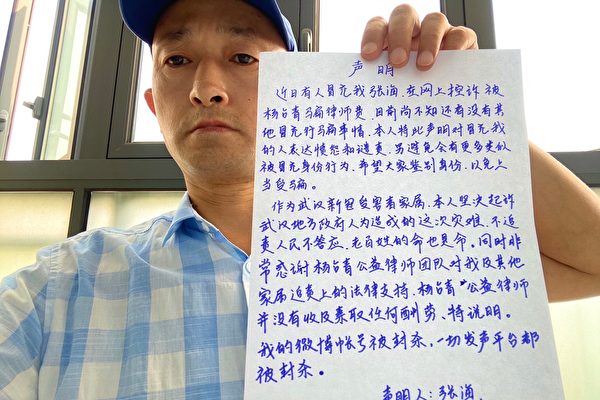 声明
近日有人冒充我张海，在网上控诉被
杨占青骗律师费，目前尚不知还有没有其
他冒充行骗事情。本人特此声明对冒充我
的人表达愤怒和谴责。另避免会有更多类似
被冒充身份行为，希望大家鉴别身份，以免上
当受骗。
作为武汉新冠受害者家属，本人坚决起诉
武汉地方政府人为造成的这次灾难，不追
责人民不答应，老百姓的命也是命。同时非
常感谢杨占青公益律师团队对我及其他
家属追责上的法律支持，杨占青“公益律师
并没有收及索取任何酬劳，特说明。
我的微博帐号被封杀，一切发声平台都
被封杀。
声明人：张海